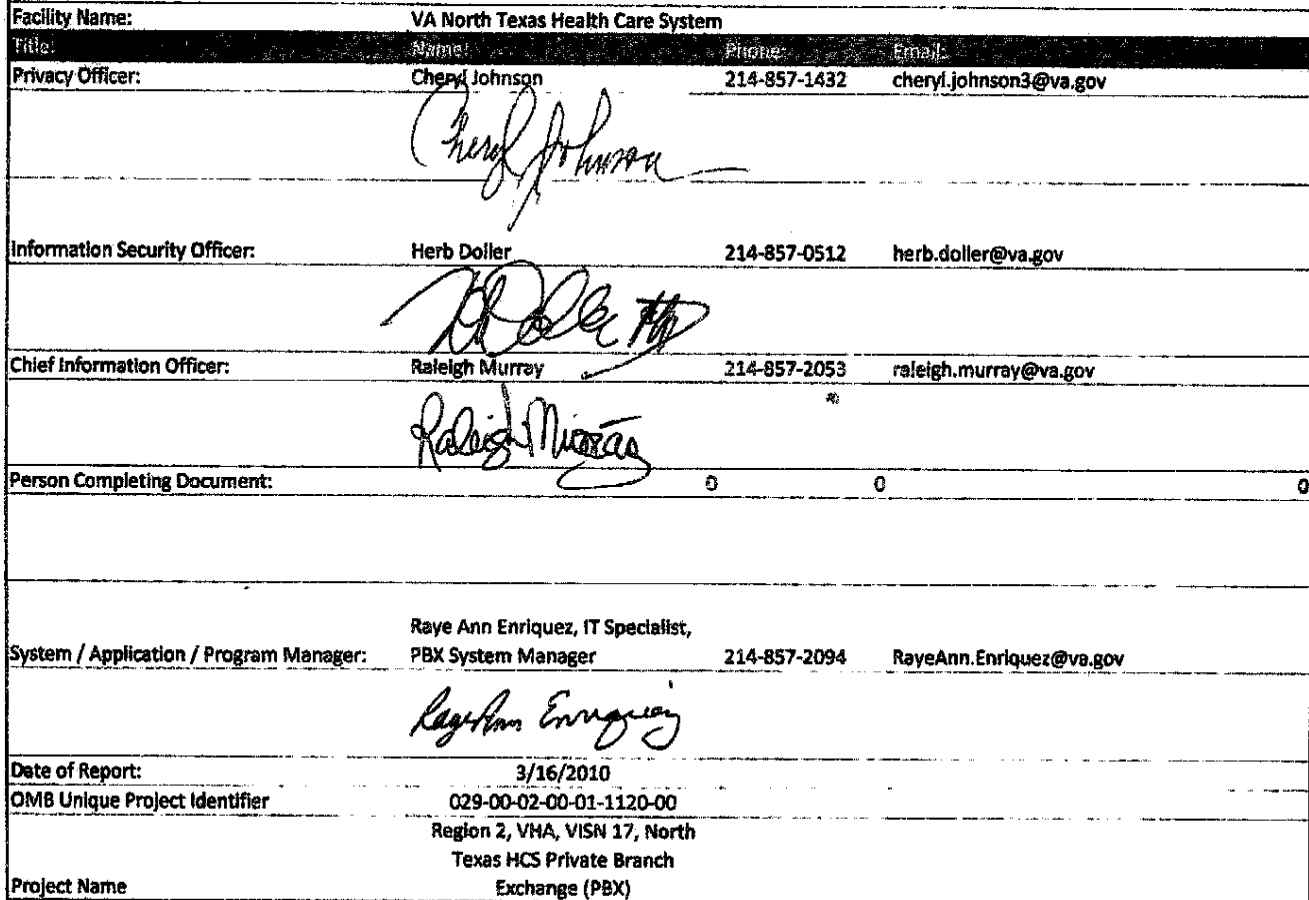 Facility Name: VA North Texas Health Care System
Title: Name: Phone: Email:
Privacy Officer: Cheryl Johnson 214-857-1432 cheryl.johnson3@va.gov
Cheryl Johnson
Information Security Officer: Herb Doller 214-857-0512 herb.doller@va.gov
Chief Information Officer: Raleigh Murray 214-857-2053 raleigh.murray@va.gov
Raleigh Murray
Person Completing Document: 0 0 0
Raye Ann Enriquez, IT Specialist,
System / Application / Program Manager: PBX System Manager 214-857-2094 RayeAnn.Enriquez@va.gov
RayeAnn Enriquez
Date of Report: 3/16/2010
OMB Unique Project Identifier 029-00-02-00-01-1120-00
Region 2, VHA, VISN 17, North
Texas HCS Private Branch
Project Name Exchange (PBX)